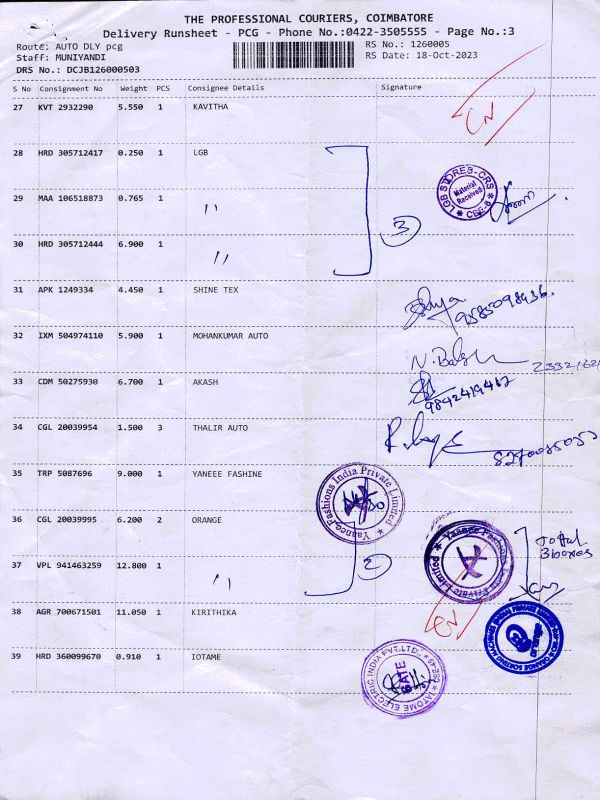 THE PROFESSIONAL COURIERS, COIMBATORE
Delivery Runsheet - PCG - Phone No.:0422-3505555 - Page No.:3
Route: AUTO DLY pcg
RS No.: 1260005
Staff: MUNIYANDI
RS Date: 18-Oct-2023
DRS No.: DCJB126000503
S No Consignment No Weight PCS Consignee Details Signature
27 KVT 2932290 5.550 1 KAVITHA
28 HRD 305712417 0.250 1 LGB
LGB STORES-CRS
Material
Received
CBE-6
29 MAA 106518873 0.765 1 〃
3
30 HRD 305712444 6.900 1 〃
31 APK 1249334 4.450 1 SHINE TEX
9585098436.
32 IXM 504974110 5.900 1 MOHANKUMAR AUTO
33 CDM 50275930 6.700 1 AKASH
9842419462
34 CGL 20039954 1.500 3 THALIR AUTO
35 TRP 5087696 9.000 1 YANEEE FASHINE
Yaanee Fashions India Private Limited
36 CGL 20039995 6.200 2 ORANGE
Total
3 boxes
37 VPL 941463259 12.800 1 〃
2
38 AGR 700671501 11.050 1 KIRITHIKA
39 HRD 360099670 0.910 1 IOTAME
IATOME ELECTRIC INDIA PVT.LTD.
GATE